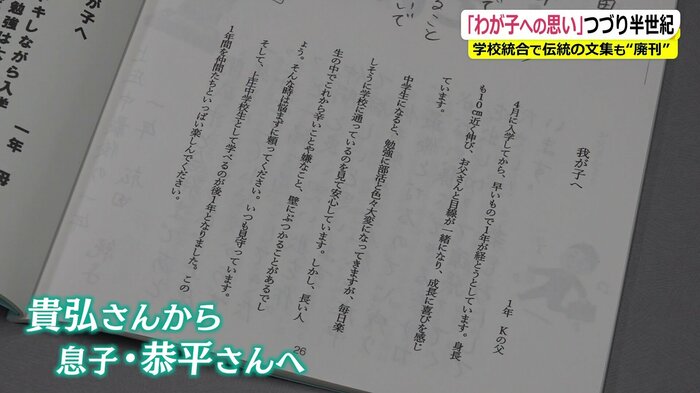 「わが子への思い」つづり半世紀
学校統合で伝統の文集も“廃刊”
我が子へ
1年 Kの父
4月に入学してから、早いもので1年が経とうとしています。身長
も10cm近く伸び、お父さんと目線が一緒になり、成長に喜びを感じ
ています。
中学生になると、勉強に部活と色々大変になってきますが、毎日楽
しそうに学校に通っているのを見て安心しています。しかし、長い人
生の中でこれから辛いことや嫌なこと、壁にぶつかることがあるでし
ょう。そんな時は悩まずに頼ってください。いつも見守っています。
そして、上庄中学校生として学べるのが後1年となりました。この
1年間を仲間たちといっぱい楽しんでください。
26
が子へ
一年 母
キしながら入学
勉強は
貴弘さんから
息子・恭平さんへ